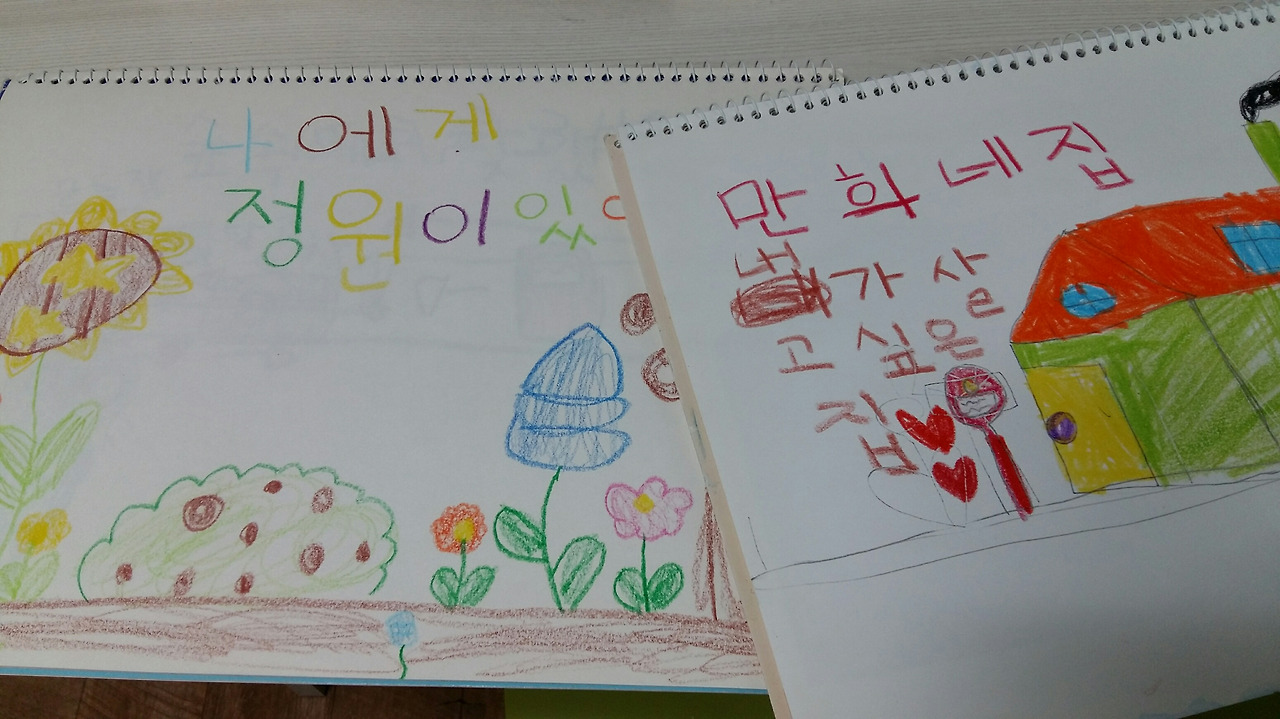 나에게
정원이 있
만화네집
내가 살
고 싶은
집